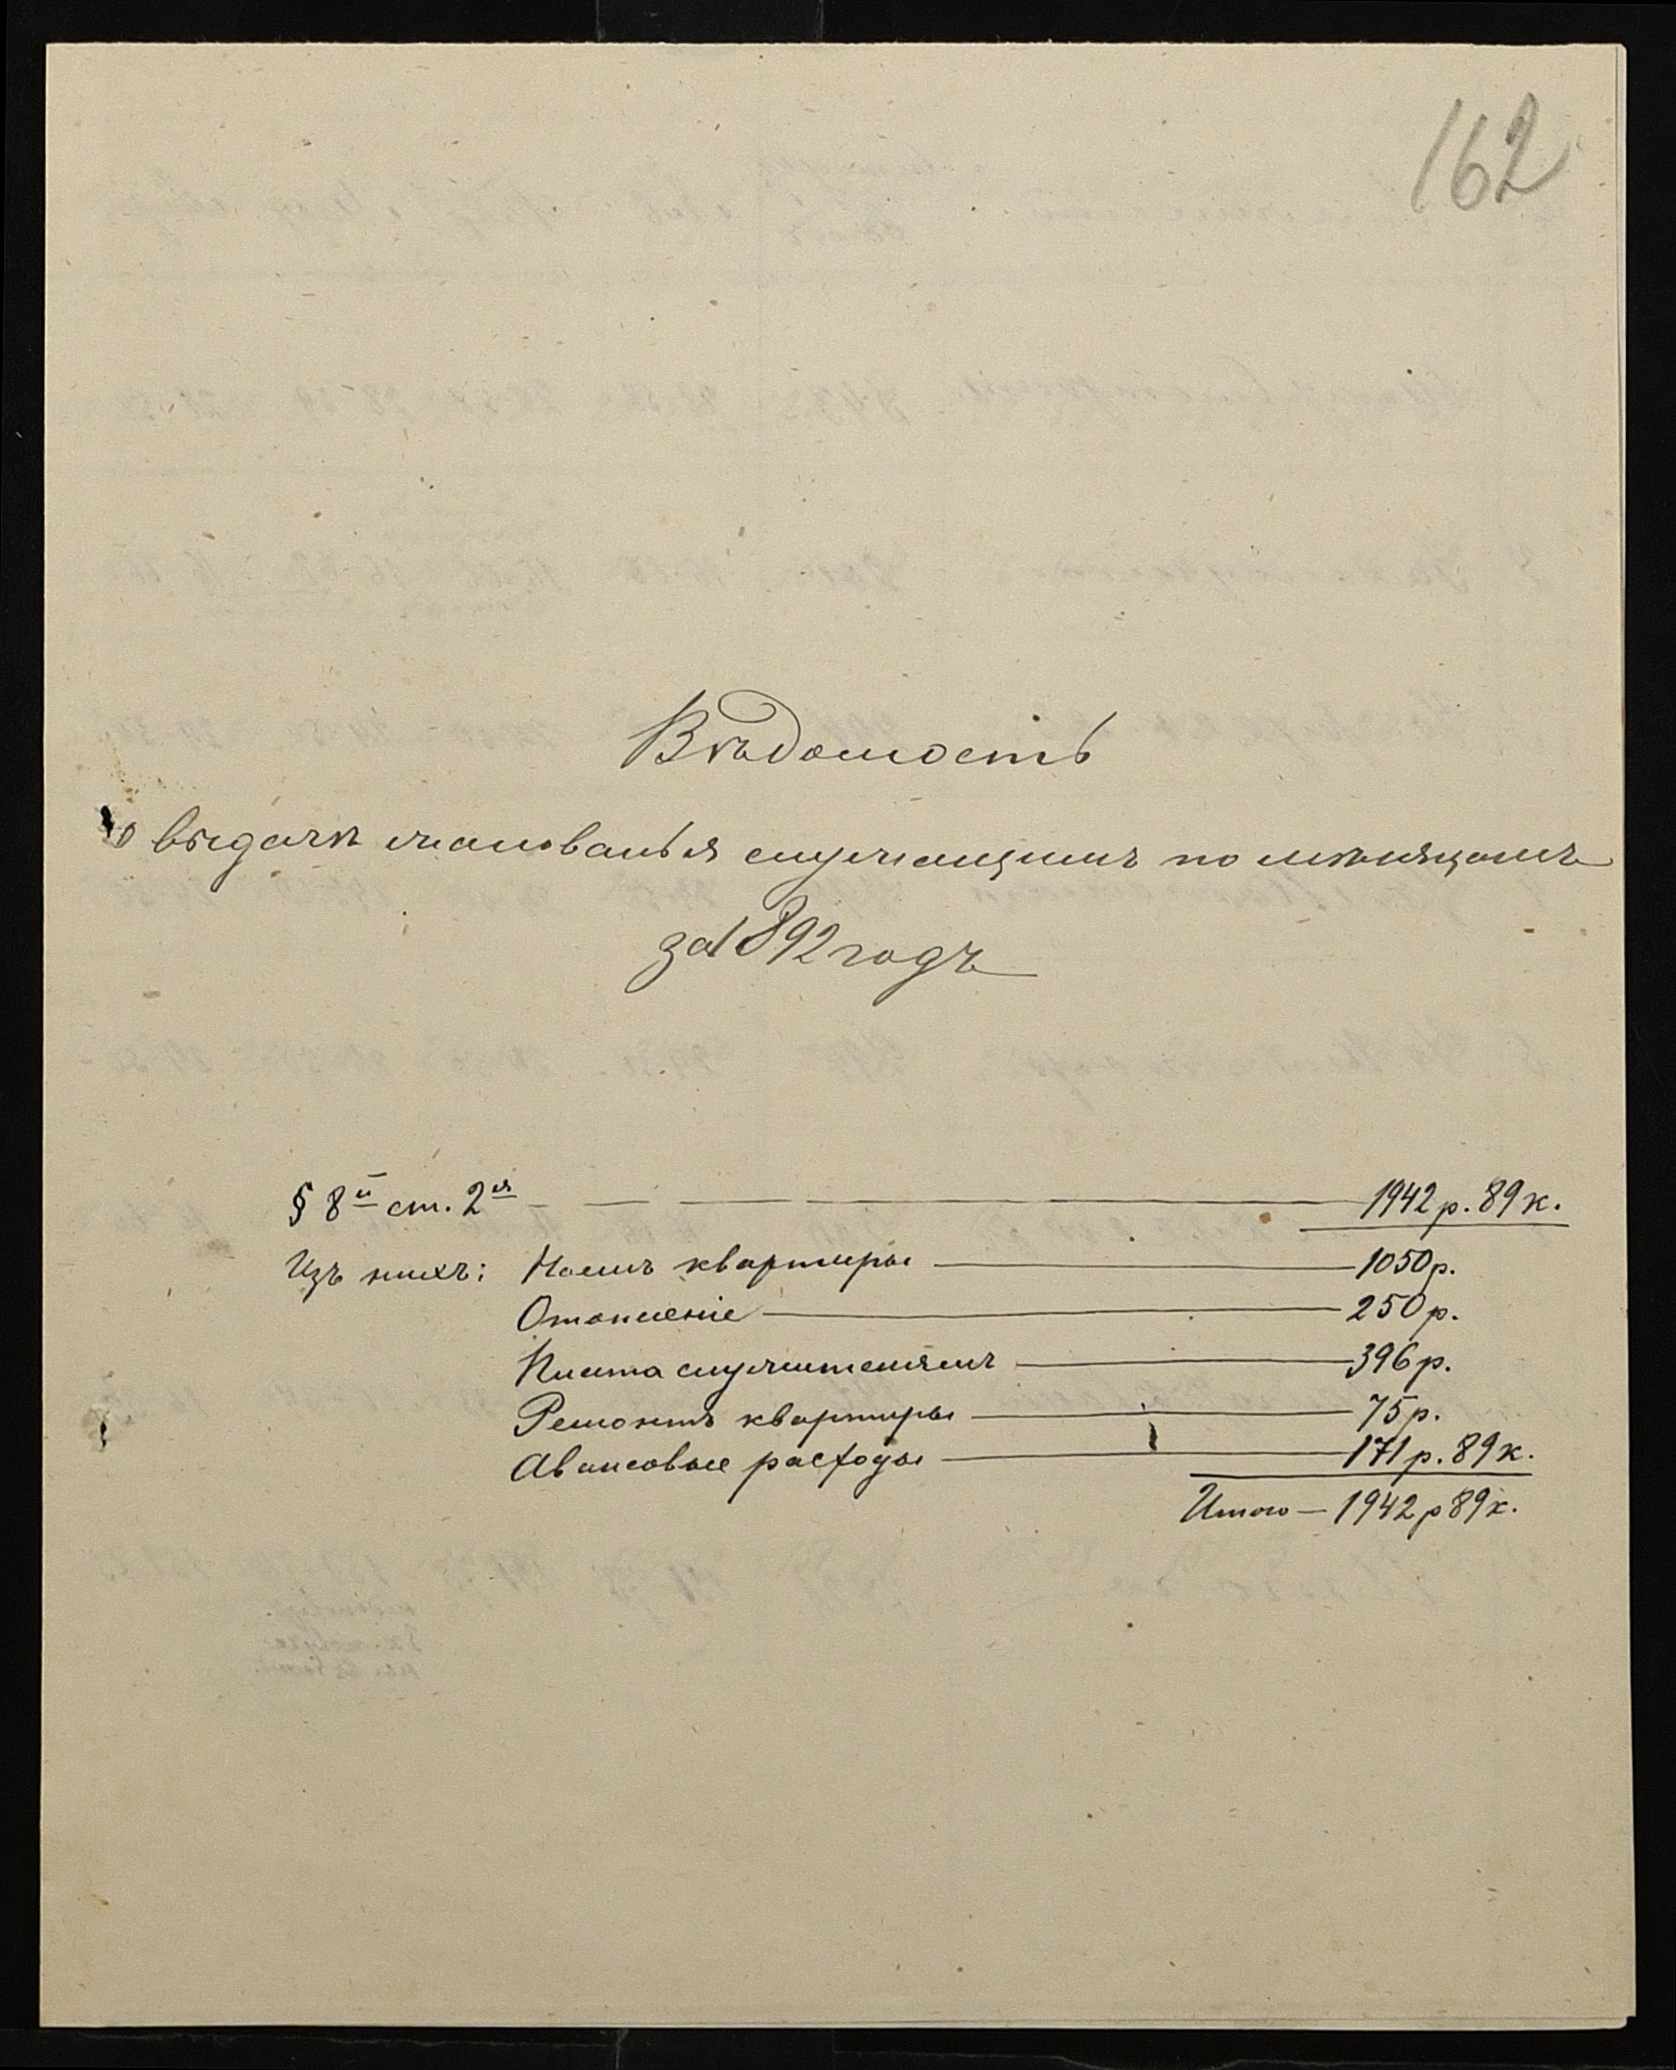 162
Вѣдомость
о выдачѣ жалованья служащимъ по мѣсяцамъ
за 1892 годъ
§ 8й ст. 2я — — — 1942 р. 89 к.
Изъ нихъ: Наемъ квартиры — 1050 р.
Отопленіе — 250 р.
Плата служителямъ — 396 р.
Ремонтъ квартиры — 75 р.
Авансовые расходы — 171 р. 89 к.
Итого — 1942 р 89 к.